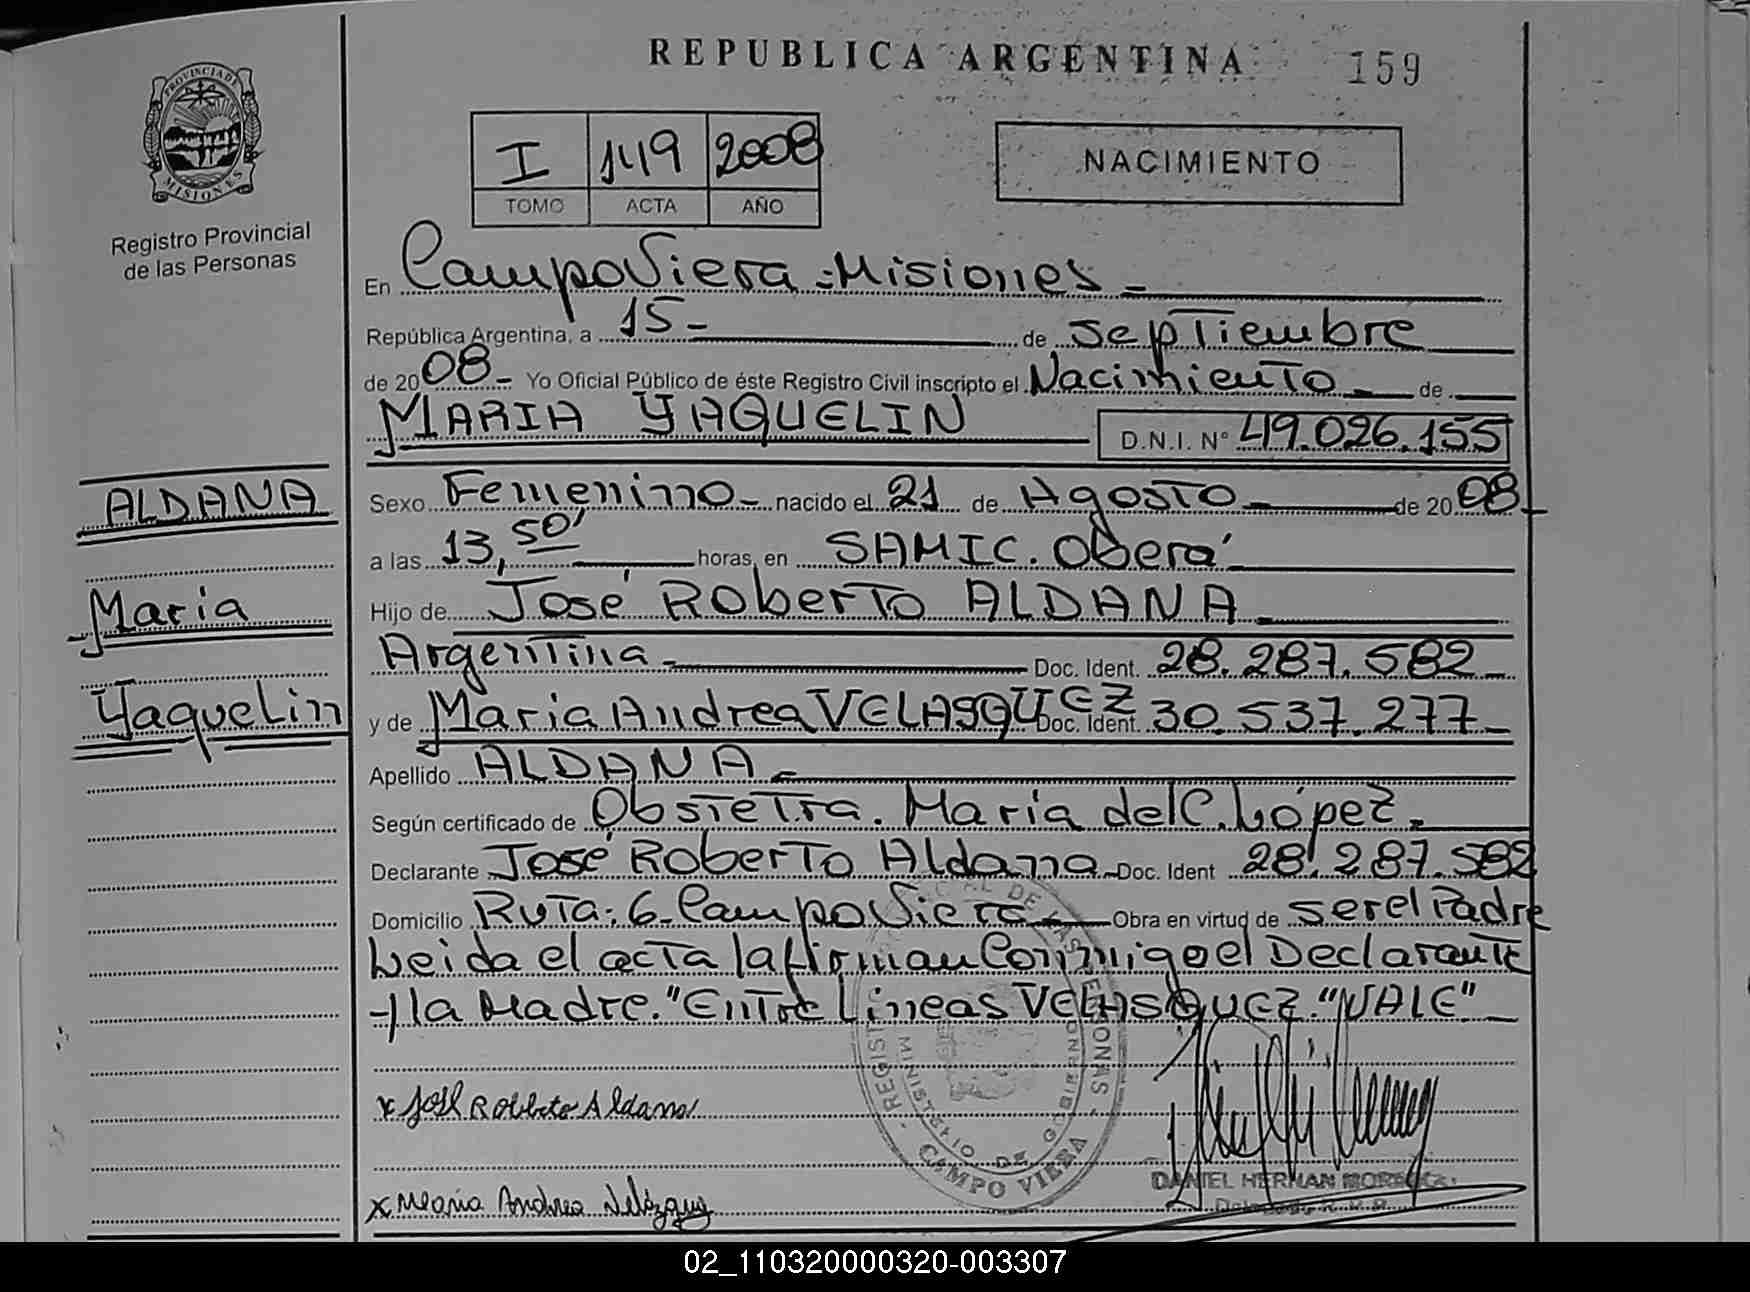 REPUBLICA ARGENTINA
159
PROVINCIA DE
MISIONES
Registro Provincial
de las Personas
I 149 2008
TOMO ACTA AÑO
NACIMIENTO
En Campo Viera = Misiones -
República Argentina, a 15- de Septiembre
de 2008- Yo Oficial Público de éste Registro Civil inscripto el Nacimiento - de
MARIA YAQUELIN D.N.I. Nº 49.026.155
ALDANA
Maria
Yaquelin
Sexo Femenino - nacido el 21 de Agosto - de 2008 -
a las 13,50' horas, en SAMIC. Oberá -
Hijo de José Roberto ALDANA -
Argentina - Doc. Ident. 28.287.582 -
y de Maria Andrea VELASQUEZ Doc. Ident. 30.537.277 -
Apellido ALDANA -
Según certificado de Obstetra. María del C. López -
Declarante José Roberto Aldana - Doc. Ident 28.287.582
Domicilio Ruta: 6- Campo Viera - Obra en virtud de ser el Padre
Leida el acta la firman Conmigo el Declarante
y la Madre. "Entre Líneas VELASQUEZ. "VALE" -
x José Roberto Aldana
x Maria Andrea Velázquez
REGIST DE LAS PERSONAS
MINISTERIO DE GOBIERNO
CAMPO VIERA
DANIEL HERNAN
02_110320000320-003307